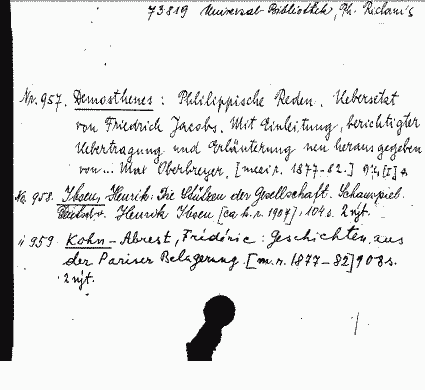 73.819 Universal-Bibliothek, Ph. Reclam's
Nr. 957. Demosthenes: Philippische Reden. Uebersetzt
von Friedrich Jacobs. Mit Einleitung, berichtigter
Uebertragung und Erläuterung neu herausgegeben
von... Max Oberbreyer. [m. r. 1877-82.]
No. 958. Ibsen, Henrik: Die Stützen der Gesellschaft. Schauspiel.
Henrik Ibsen [ca k. n. 1907], 104 s. 2 nyt.
" 959. Kohn-Abrest, Frédéric: Geschichten aus
der Pariser Belagerung. [m. r. 1877-82] 908 s.
2 nyt.